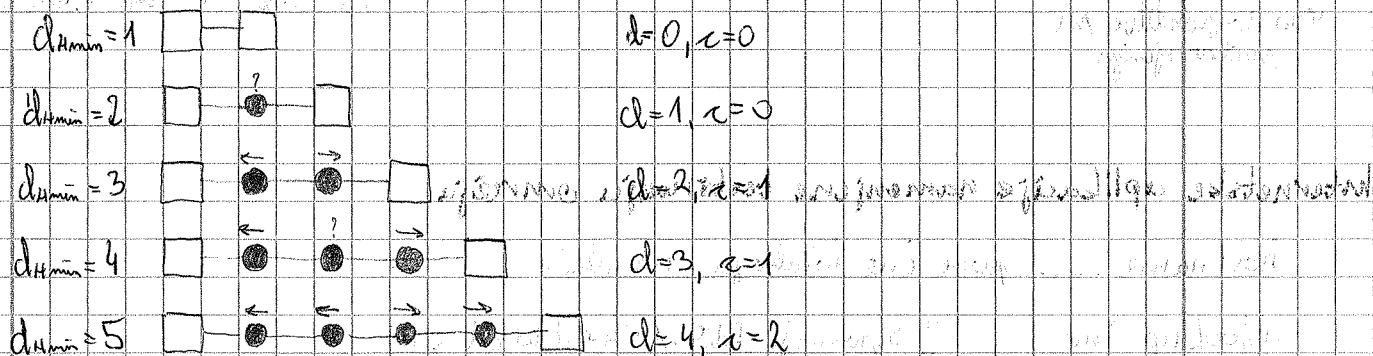 dHmin = 1 d=0, r=0
? dHmin = 2 d=1, r=0
← → dHmin = 3 d=2, r=1
← ? → dHmin = 4 d=3, r=1
← ← → → dHmin = 5 d=4, r=2